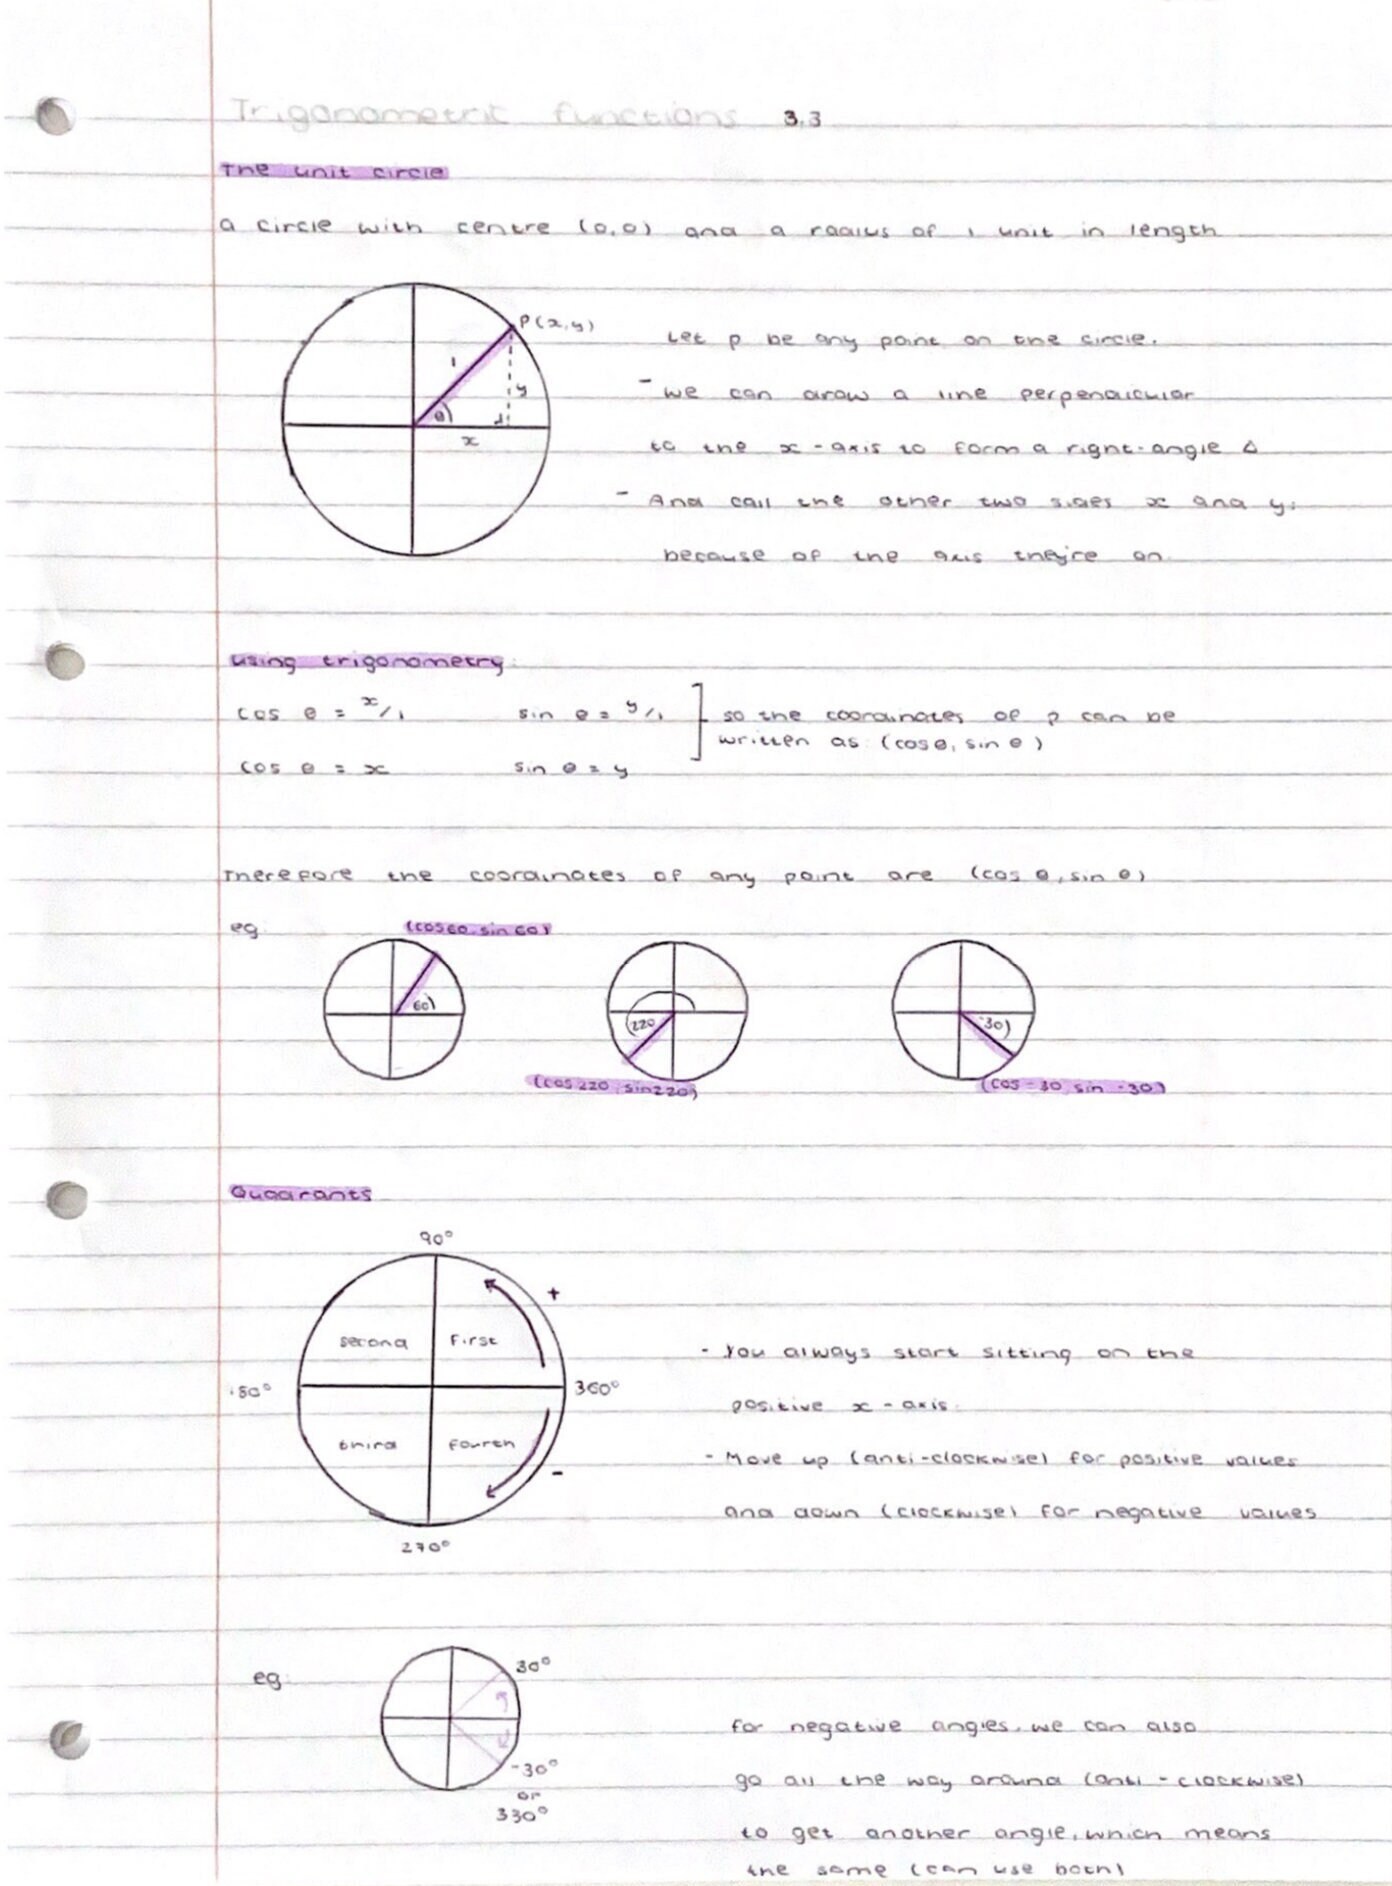 Trigonometric functions 3.3
The unit circle
a circle with centre (0,0) and a radius of 1 unit in length
P(x,y)
Let p be any point on the circle.
1
- we can draw a line perpendicular
y
θ
x
to the x-axis to form a right-angle Δ
- And call the other two sides x and y.
because of the axis they're on.
using trigonometry:
cos θ = x/1 sin θ = y/1 ] so the coordinates of p can be
written as: (cosθ, sin θ)
cos θ = x sin θ = y
Therefore the coordinates of any point are (cos θ, sin θ)
eg.
(cos60, sin60)
60
220
-30
(cos220, sin220)
(cos -30, sin -30)
Quadrants
90°
+
second first
- You always start sitting on the
180° 360°
positive x-axis.
third fourth
- Move up (anti-clockwise) for positive values
-
and down (clockwise) for negative values
270°
eg.
30°
for negative angles, we can also
-30°
go all the way around (anti-clockwise)
or
330°
to get another angle, which means
the same (can use both)